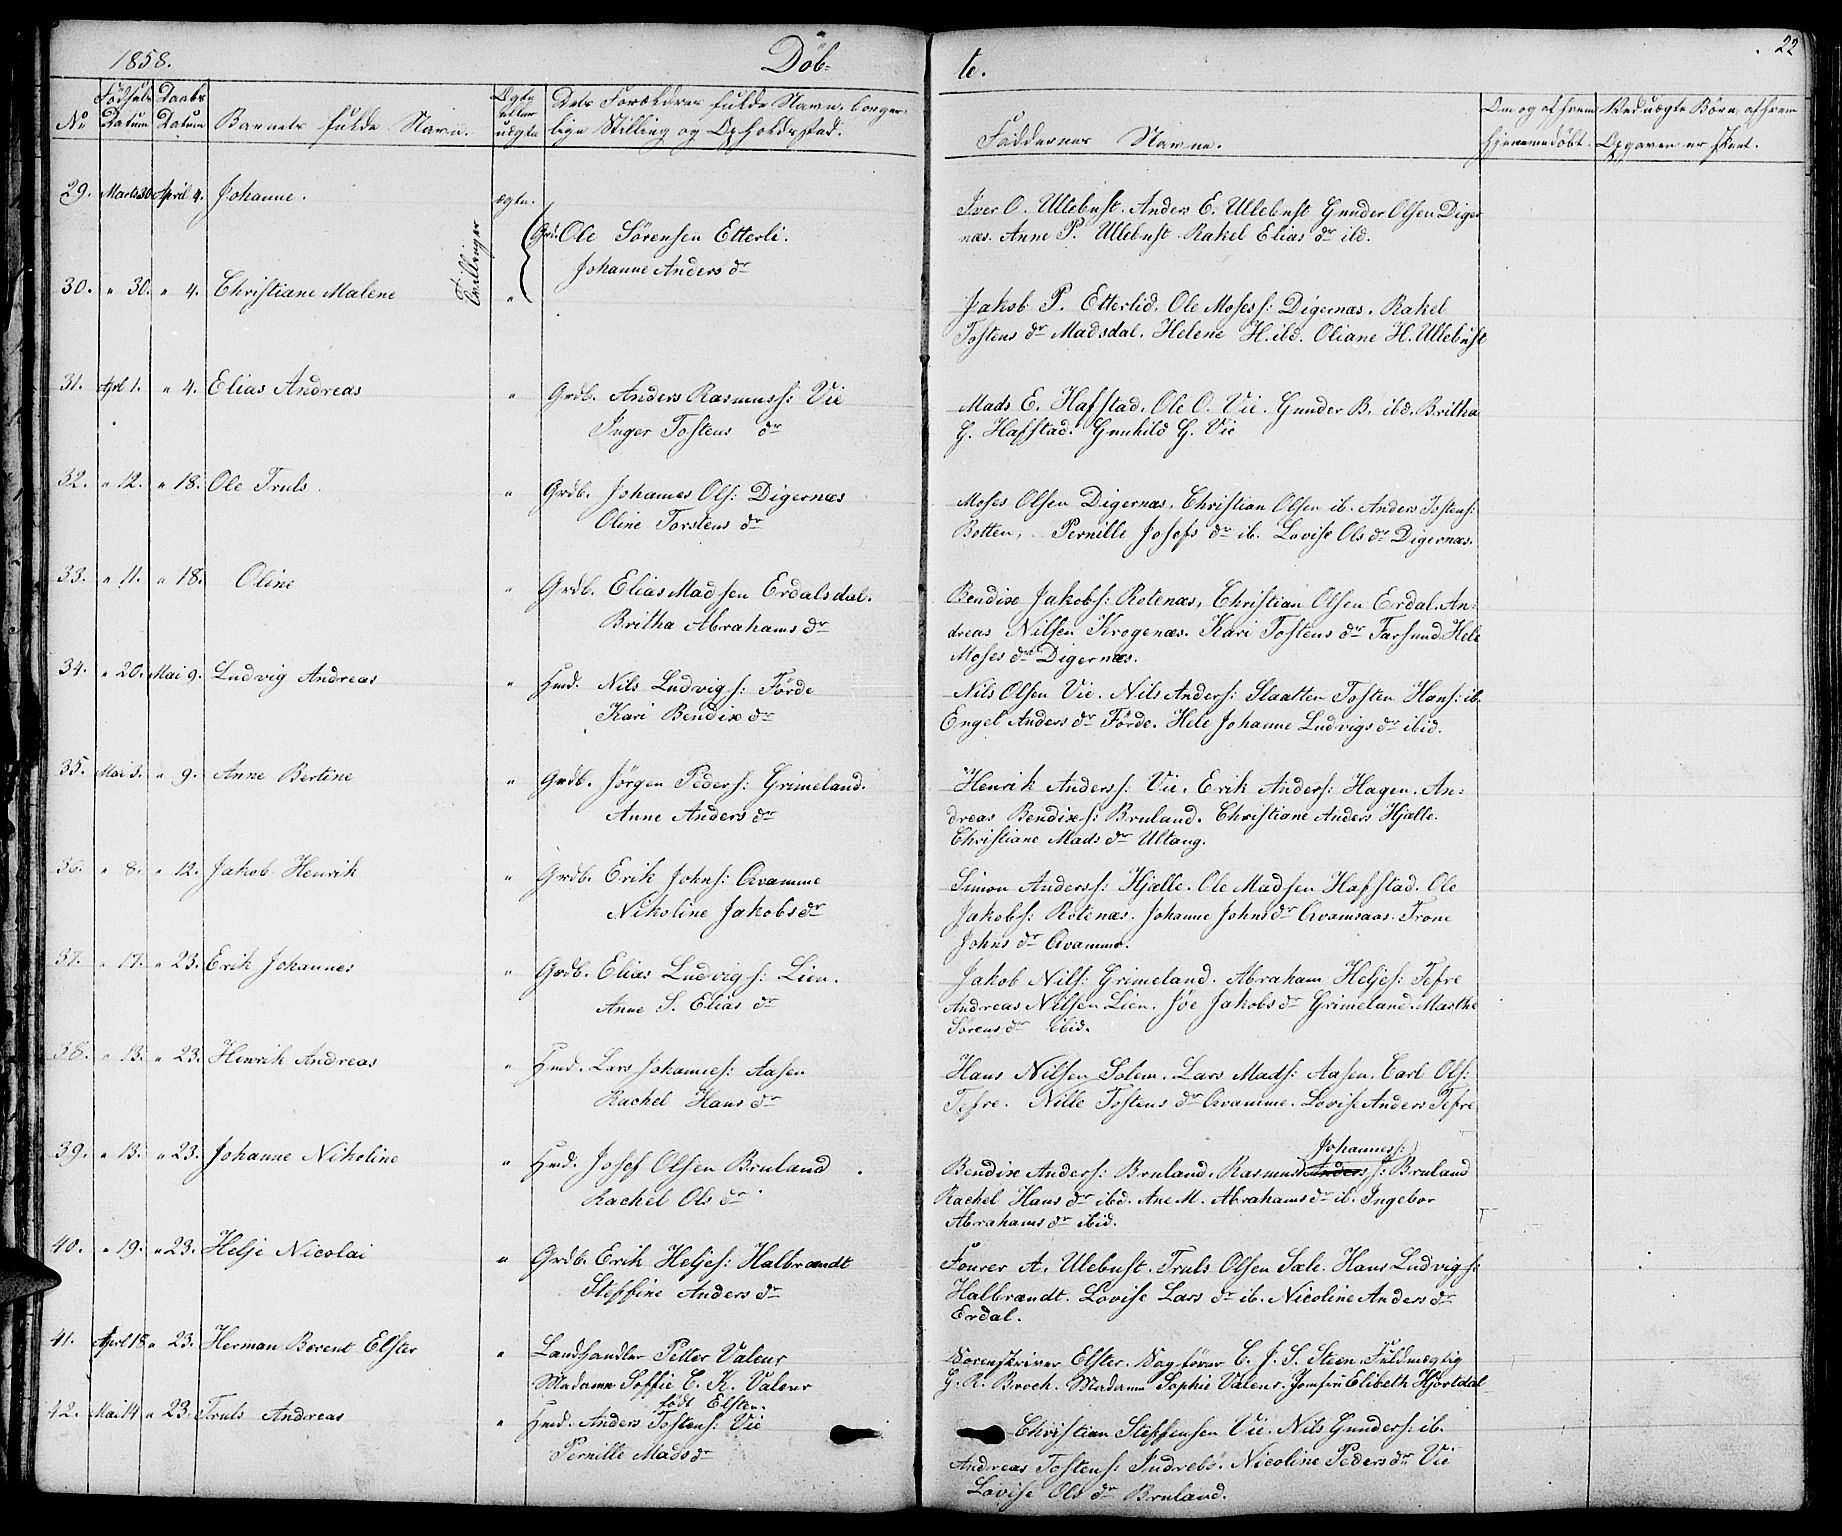 1858.
Döb-
te.
22
No
Födsels Datum
Daabs Datum
Barnets fulde Navn.
Ægte eller uægte
Dets Forældres fulde Navn, borger-
lige Stilling og Opholdssted.
Faddernes Navne.
Om og af hvem
hjemmedöbt.
Ved uægte Börn, af hvem
Opgaven er skeet.
29. Marts 30 April 4. Johanne. ægte.
Tvillinger
Grd. Ole Sörensen Etterli.
Johanne Anders dr
Iver O. Ullebust. Anders E. Ullebust Gunder Olsen Diger
næs. Anne P. Ullebust. Rakel Elias dr ibd.
30. " 30. " 4. Christiane Malene "
Jakob P. Etterlid. Ole Moses s: Digernæs. Rakel
Tostens dr Madsdal. Helene H. ibd. Oliane H. Ullebust
31. Apl 1. " 4. Elias Andreas " Grdb. Anders Rasmuss: Vie
Inger Tostens dr
Mads E. Hafstad. Ole O. Vie. Gunder B. ibd. Britha
G. Hafstad. Gunhild G. Vie
32. " 12. " 18. Ole Truls. " Grdb. Johannes Ols: Digernæs
Oline Torstens dr
Moses Olsen Digernæs, Christian Olsen ib. Anders Tostens:
Botten, Pernille Josefs dr ib. Lovise Ols dr Digernæs.
33. " 11. " 18. Oline " Grdb. Elias Madsen Erdalsdal.
Britha Abrahams dr
Bendixe Jakobs: Rotenæs, Christian Olsen Erdal. An-
dreas Nilsen Krogenæs. Kari Tostens dr Farsund Hele
Moses dr Digernæs.
34. " 20. Mai 9. Ludvig Andreas " Hmd. Nils Ludvigs: Förde
Kari Bendix dr
Nils Olsen Vie. Nils Anders: Slaatten Tosten Hans: ib.
Engel Anders dr Förde. Hele Johanne Ludvigs dr ibid.
35. Mai 3. " 9. Anne Bertine " Grdb. Jörgen Peders: Grimeland.
Anne Anders dr
Henrik Anderss: Vie. Erik Anders: Hagen. An-
dreas Bendixs: Bruland. Christiane Anders Hjælle.
Christiane Mads dr Ultang.
36. " 8. " 12. Jakob Henrik " Grdb. Erik Johns: Qvamme
Nikoline Jakobs dr
Simon Anderss: Hjælle. Ole Madsen Hafstad. Ole
Jakobs: Rotenæs. Johanne Johns dr Qvamsaas. Trone
Johns dr Qvamme.
37. " 17. " 23. Erik Johannes " Grdb. Elias Ludvigs: Lien.
Anne S. Elias dr
Jakob Nils: Grimeland. Abraham Heljes: Tefre
Andreas Nilsen Lien. Söe Jakobs dr Grimeland. Marthe
Sörens dr ibid.
38. " 13. " 23. Henrik Andreas " Hmd. Lars Johannes: Aasen
Rachel Hans dr
Hans Nilsen Solem. Lars Mads: Aasen. Carl Ols:
Tefre. Nille Tostens dr Qvamme. Lovise Anders Tefre
39. " 13. " 23. Johanne Nikoline " Hmd. Josef Olsen Bruland.
Rachel Ols dr
Johannes:
Bendixe Anders: Bruland. Rasmus Anders s: Bruland
Rachel Hans dr ibd. Ane M. Abrahams dr ib. Ingebor
Abrahams dr ibid.
40. " 19. " 23. Helje Nicolai " Grdb. Erik Heljes: Halbrændt
Steffine Anders dr
Fourer A. Ulebust. Truls Olsen Sæle. Hans Ludvigs:
Halbrændt. Lovise Lars dr ib. Nicoline Anders dr
Erdal.
41. April 18 " 23. Herman Berent Elster " Landhandler Petter Valeur
Madame Soffie C. K. Valeur
födt Elster.
Sorenskriver Elster. Sagförer C. J. S. Steen. Fuldmægtig
G. R. Broch. Madame Sophie Valeur. Jomfru Elibeth Hjortdal
42. Mai 14 " 23. Truls Andreas " Hmd. Anders Tostens: Vie
Pernille Mads dr
Christian Steffensen Vie. Nils Gunders: ib.
Andreas Tostens: Indrebö. Nicoline Peders dr Vie
Lovise Ols dr Bruland.